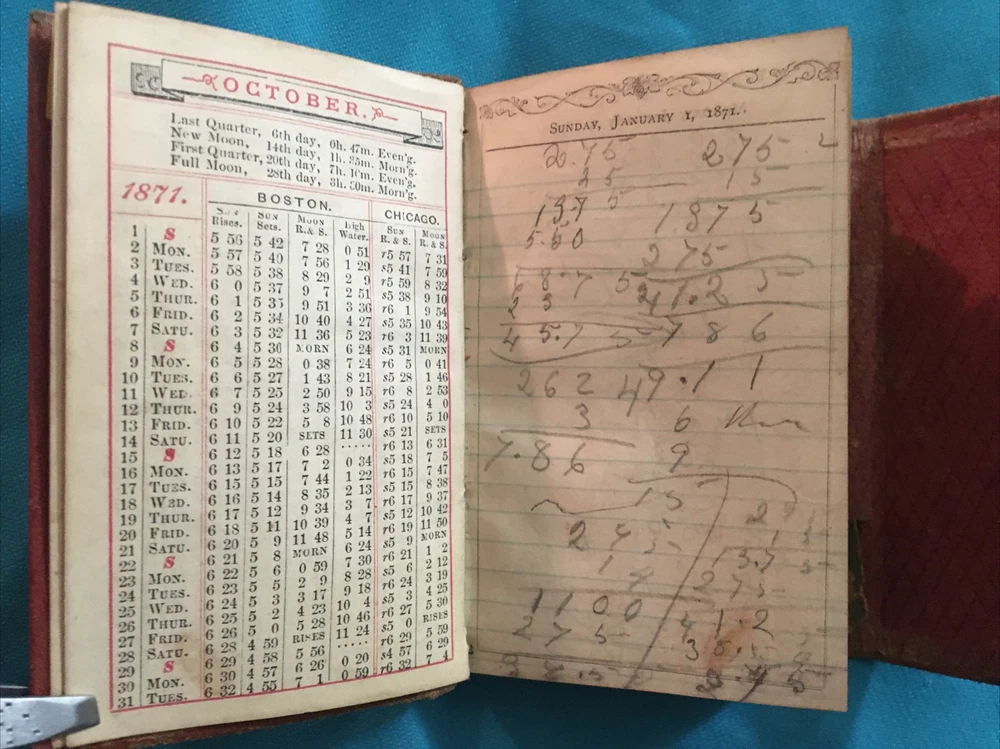 OCTOBER.
Last Quarter, 6th day, 0h. 47m. Even'g.
New Moon, 14th day, 1h. 35m. Morn'g.
First Quarter, 20th day, 7h. 10m. Even'g.
Full Moon, 28th day, 3h. 30m. Morn'g.
1871. BOSTON. CHICAGO.
SUN Rises. SUN Sets. MOON R. & S. High Water. SUN R. & S. MOON R. & S.
1 S 5 56 5 42 7 28 0 51 r5 57 7 31
2 MON. 5 57 5 40 7 56 1 29 s5 41 7 59
3 TUES. 5 58 5 38 8 29 2 9 r5 59 8 32
4 WED. 6 0 5 37 9 7 2 51 s5 38 9 10
5 THUR. 6 1 5 35 9 51 3 36 r6 1 9 54
6 FRID. 6 2 5 34 10 40 4 27 s5 35 10 43
7 SATU. 6 3 5 32 11 36 5 23 r6 3 11 39
8 S 6 4 5 30 MORN 6 24 s5 31 MORN
9 MON. 6 5 5 28 0 38 7 24 r6 5 0 41
10 TUES. 6 6 5 27 1 43 8 21 s5 28 1 46
11 WED. 6 7 5 25 2 50 9 15 r6 8 2 53
12 THUR. 6 9 5 24 3 58 10 3 s5 24 4 0
13 FRID. 6 10 5 22 5 8 10 48 r6 10 5 10
14 SATU. 6 11 5 20 SETS 11 30 s5 21 SETS
15 S 6 12 5 18 6 28 ..... r6 13 6 31
16 MON. 6 13 5 17 7 2 0 34 s5 18 7 5
17 TUES. 6 15 5 15 7 44 1 22 r6 15 7 47
18 WED. 6 16 5 14 8 35 2 13 s5 15 8 38
19 THUR. 6 17 5 12 9 34 3 7 r6 17 9 37
20 FRID. 6 18 5 11 10 39 4 7 s5 12 10 42
21 SATU. 6 20 5 9 11 48 5 14 r6 19 11 50
22 S 6 21 5 8 MORN 6 24 s5 9 MORN
23 MON. 6 22 5 6 0 59 7 30 r6 21 1 2
24 TUES. 6 23 5 5 2 9 8 28 s5 6 2 12
25 WED. 6 24 5 3 3 17 9 18 r6 24 3 19
26 THUR. 6 25 5 2 4 23 10 4 s5 3 4 25
27 FRID. 6 26 5 0 5 28 10 46 r6 27 5 30
28 SATU. 6 28 4 59 RISES 11 24 s5 0 RISES
29 S 6 29 4 58 5 56 ..... r6 29 5 59
30 MON. 6 30 4 57 6 26 0 20 s4 57 6 29
31 TUES. 6 32 4 55 7 1 0 59 r6 32 7 4
SUNDAY, JANUARY 1, 1871.
2.75 275
25 15
13.75 1.375
5.50 275
68.75 41.25
23
45.75 786
262 49.11
3 6
7.86 9
15 2
275
13.75
275
1100 41.2
275